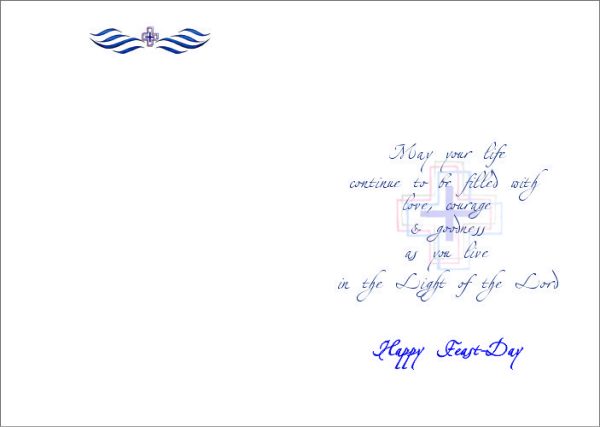 May your life
continue to be filled with
love, courage
& goodness
as you live
in the Light of the Lord
Happy Feast-Day